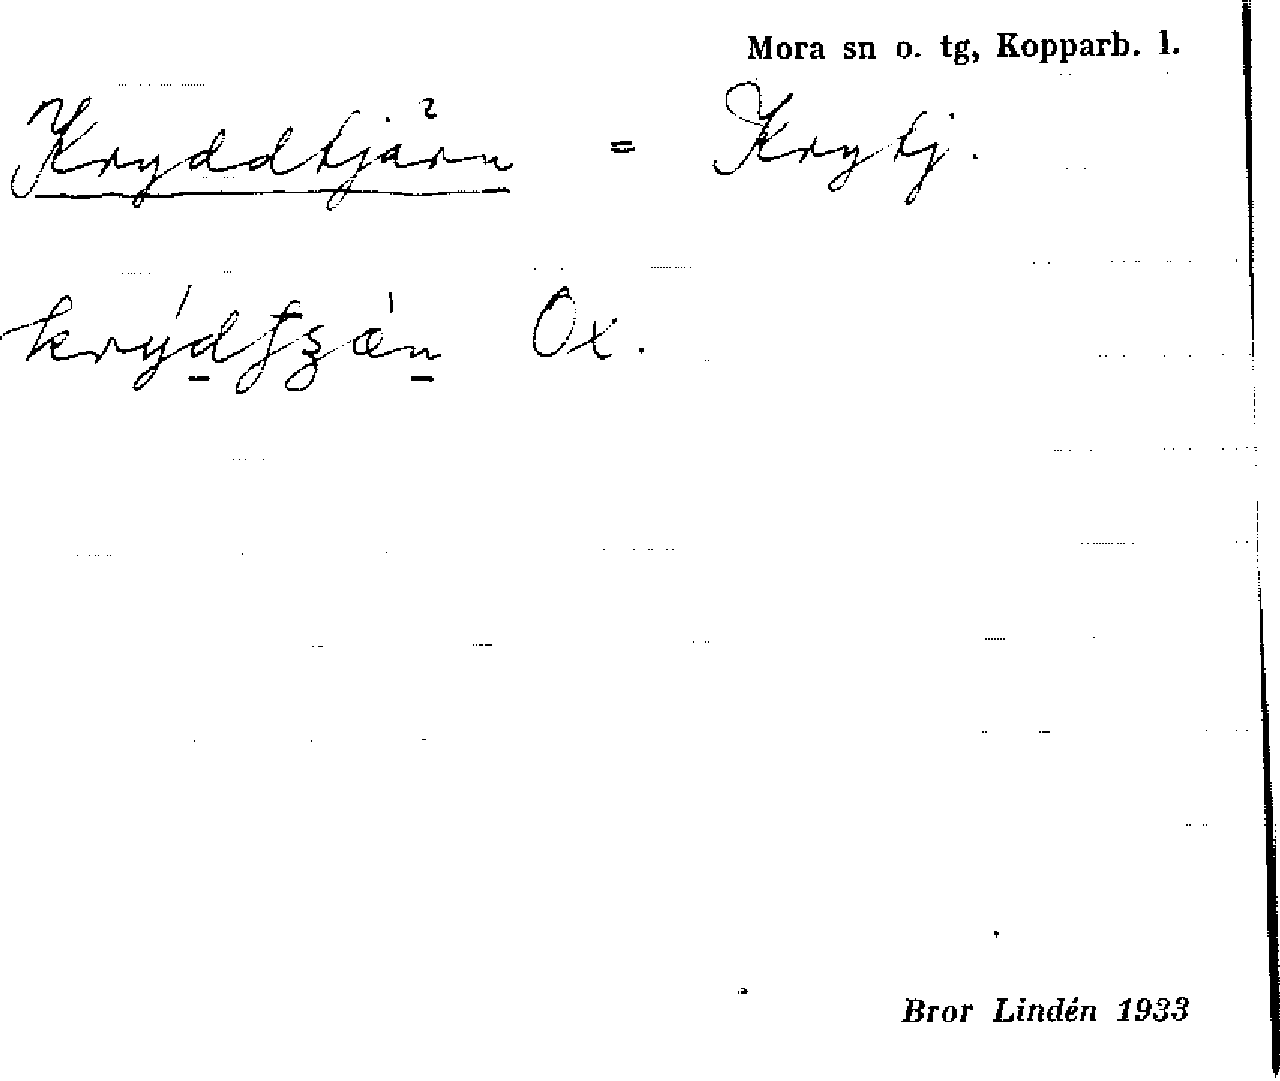 Mora sn o. tg, Kopparb. l.
Kryddtjärn = Krytj.
Ox.
Bror Lindén 1933